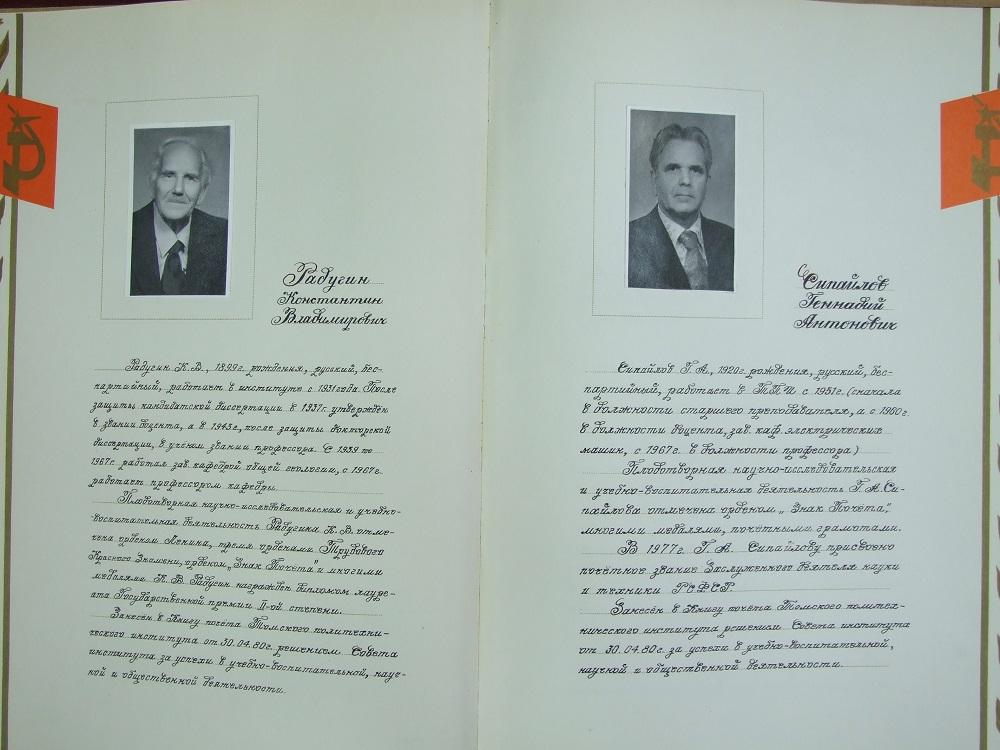 Радугин
Константин
Владимирович
Радугин К.В., 1899г. рождения, русский, бес-
партийный, работает в институте с 1931 года. После
защиты кандидатской диссертации в 1937г. утверждён
в звании доцента, а в 1943г., после защиты докторской
диссертации, в учёном звании профессора. С 1939 по
1967г. работал зав. кафедрой общей геологии, с 1967г.
работает профессором кафедры.
Плодотворная научно-исследовательская и учебно-
воспитательная деятельность Радугина К.В. отме-
чена орденом Ленина, тремя орденами Трудового
Красного Знамени, орденом „Знак Почёта" и многими
медалями. К.В. Радугин награжден дипломом лауре-
ата Государственной премии II-ой степени.
Занесён в Книгу почёта Томского политехни-
ческого института от 30.04.80г. решением Совета
института за успехи в учебно-воспитательной, науч-
ной и общественной деятельности.
Сипайлов
Геннадий
Антонович
Сипайлов Г.А., 1920г. рождения, русский, бес-
партийный, работает в ТПИ с 1951г. (сначала
в должности старшего преподавателя, а с 1960г.
в должности доцента, зав. каф. электрических
машин, с 1967г. в должности профессора)
Плодотворная научно-исследовательская
и учебно-воспитательная деятельность Г.А. Си-
пайлова отмечена орденом „Знак Почёта",
многими медалями, почётными грамотами.
В 1977г. Г.А. Сипайлову присвоено
почётное звание Заслуженного деятеля науки
и техники РСФСР.
Занесён в Книгу почёта Томского политех-
нического института решением Совета института
от 30.04.80г. за успехи в учебно-воспитательной,
научной и общественной деятельности.